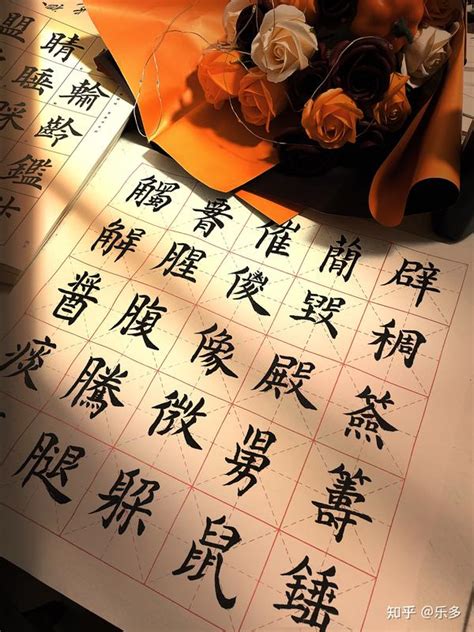 辟稠簽籌錘
簡毀殿舅鼠
催傻像微躲
腥腹騰腿
觸解醬痰
睛輪齡鑑
盟睡睬
知乎 @乐多